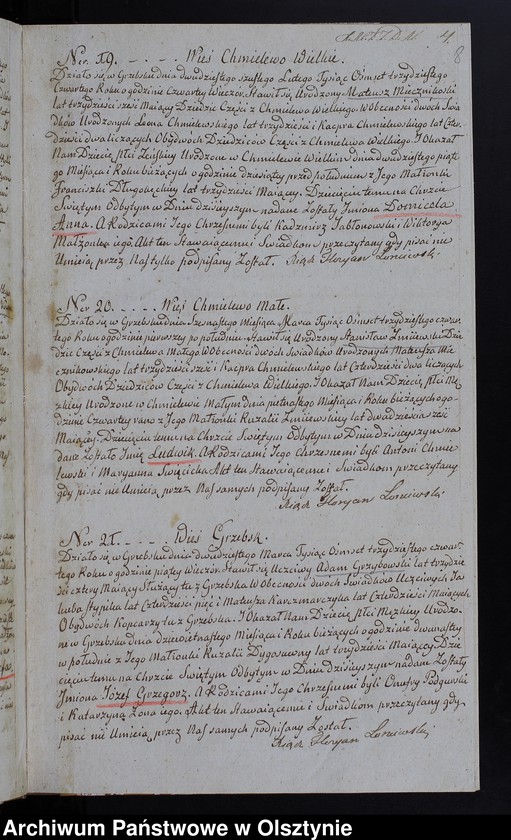 4.
8
Nr. 19. - - - - - Wieś Chmielewo Wielkie.
Działo się w Grzebsku dnia dwudziestego szóstego Lutego Tysiąc Ośmset trzydziestego
Czwartego Roku o godzinie Czwartey Wieczor. Stawił się, Urodzony Mateusz Miecznikoski
lat trzydzieści sześć Maiący Dziedzic Części z Chmielewa Wielkiego. W Obecności dwóch Świad
ków Urodzonych Leona Chmielewskiego lat trzydzieści i Kacpra Chmielewskiego lat Czter
dzieści dwa liczących Obydwóch Dziedziców Części z Chmielewa Wielkiego. I Okazał
Nam Dziecię płci Żeńskiey Urodzone w Chmielewie Wielkim Dnia dwudziestego piąte
go Miesiąca i Roku bieżących o godzinie dziesiątey przed południem z Jego Małżonki
Franciszki Długołęckiey lat trzydzieści Maiącey. Dziecięciu temu na Chrzcie
Świętym Odbytym w Dniu dzisieyszym nadane Zostały Jmiona Domicela
Anna. A Rodzicami Jego Chrzesnemi byli Kazimierz Jabłonowski i Wiktorya
Małżonka iego. Akt ten Stawaiącemu i Świadkom przeczytany gdy pisać nie
Umieią przez Nas tylko podpisany Został. Xiądz Floryan
Nr 20. - - - - Wieś Chmielewo Małe.
Działo się w Grzebsku dnia Szesnastego Miesiąca Marca Tysiąc Ośmset trzydziestego czwar
tego Roku o godzinie pierwszey po południu. Stawił się Urodzony Stanisław Żmiiewski Dzie
dzic Części z Chmielewa Małego W Obecności dwóch Świadków Urodzonych Mateusza Mie
cznikowskiego lat trzydzieści sześć i Kacpra Chmielewskiego lat Czterdzieści dwa liczących
Obydwóch Dziedziców Części z Chmielewa Wielkiego. I Okazał Nam Dziecię płci Mę
zkiey Urodzone w Chmielewie Małym dnia pietnastego Miesiąca i Roku bieżących o go
dzinie Czwartey rano z Jego Małżonki Rozalii Żmiiewskiey lat dwadzieścia sześć
Maiącey. Dziecięciu temu na Chrzcie Świętym Odbytym w Dniu dzisieyszym na
dane Zostało Jmię Ludwik. A Rodzicami Jego Chrzesnemi byli Antoni Chmie
lewski i Maryanna Święcicka Akt ten Stawaiącemu i Świadkom przeczytany
gdy pisać nie Umieią przez Nas samych podpisany Został.
Xiądz Floryan
Nr 21. - - - - - Wieś Grzebsk.
Działo się w Grzebsku dnia dwudziestego Marca Tysiąc Ośmset trzydziestego czwar
tego Roku o godzinie piątey Wieczor. Stawił się Uczciwy Adam Grzybowski lat trzydzie
ści cztery Maiący Służący tu z Grzebska W Obecności dwóch Świadków Uczciwych Ja
kuba Stypiłka lat Czterdzieści pięć i Mateusza Karczmarczyka lat Czterdzieści Maiących
Obydwóch Kopcarzy tu z Grzebska. I Okazał Nam Dziecię płci Męzkiey Urodzo
ne w Grzebsku dnia dziewiętnastego Miesiąca i Roku bieżących o godzinie dwunastey
w południe z Jego Małżonki Rozalii Dygasowny lat trzydzieści Maiącey. Dzie
cięciu temu na Chrzcie Świętym Odbytym w Dniu dzisieyszym nadane Zostały
Jmiona Józef Grzegorz. A Rodzicami Jego Chrzesnemi byli Onufry Podgurski
i Katarzyna Żona iego. Akt ten Stawaiącemu i Świadkom przeczytany gdy
pisać nie Umieią przez Nas samych podpisany Został.
Xiądz Floryan
Archiwum Państwowe w Olsztynie